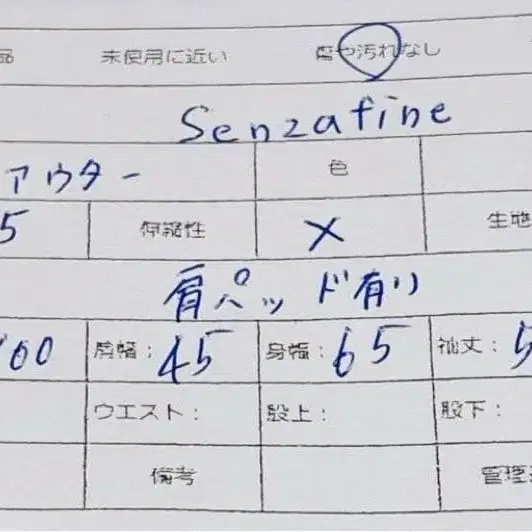 品 未使用に近い 傷や汚れなし
Senzafine
アウター 色
5 伸縮性 × 生地
肩パッド有り
00 肩幅: 45 身幅: 65 袖丈: 5
ウエスト: 股上: 股下:
備考 管理